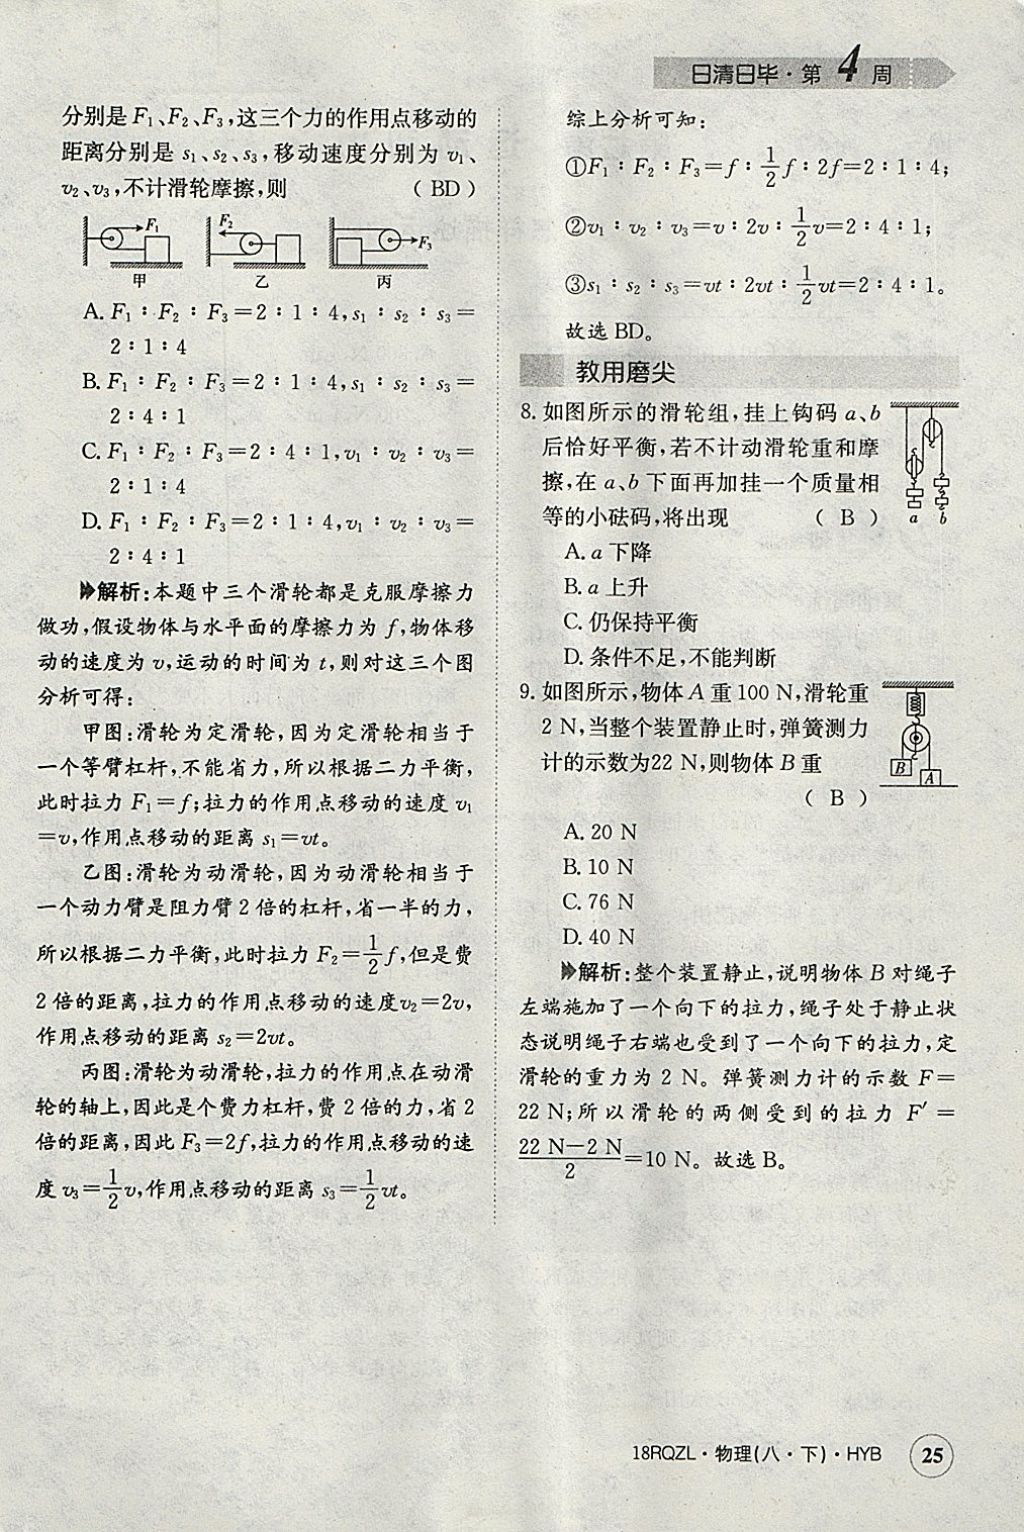 日清日毕·第4周
分别是 F₁、F₂、F₃,这三个力的作用点移动的
距离分别是 s₁、s₂、s₃,移动速度分别为 v₁、
v₂、v₃,不计滑轮摩擦,则 ( BD )
F₁ F₂ F₃
甲 乙 丙
A. F₁∶F₂∶F₃=2∶1∶4,s₁∶s₂∶s₃=
2∶1∶4
B. F₁∶F₂∶F₃=2∶1∶4,s₁∶s₂∶s₃=
2∶4∶1
C. F₁∶F₂∶F₃=2∶4∶1,v₁∶v₂∶v₃=
2∶1∶4
D. F₁∶F₂∶F₃=2∶1∶4,v₁∶v₂∶v₃=
2∶4∶1
解析:本题中三个滑轮都是克服摩擦力
做功,假设物体与水平面的摩擦力为 f,物体移
动的速度为 v,运动的时间为 t,则对这三个图
分析可得:
甲图:滑轮为定滑轮,因为定滑轮相当于
一个等臂杠杆,不能省力,所以根据二力平衡,
此时拉力 F₁=f;拉力的作用点移动的速度 v₁
=v,作用点移动的距离 s₁=vt。
乙图:滑轮为动滑轮,因为动滑轮相当于
一个动力臂是阻力臂2倍的杠杆,省一半的力,
所以根据二力平衡,此时拉力 F₂=1/2f,但是费
2倍的距离,拉力的作用点移动的速度v₂=2v,
作用点移动的距离 s₂=2vt。
丙图:滑轮为动滑轮,拉力的作用点在动滑
轮的轴上,因此是个费力杠杆,费2倍的力,省2
倍的距离,因此 F₃=2f,拉力的作用点移动的速
度 v₃=1/2v,作用点移动的距离 s₃=1/2vt。
综上分析可知:
①F₁∶F₂∶F₃=f∶1/2f∶2f=2∶1∶4;
②v₁∶v₂∶v₃=v∶2v∶1/2v=2∶4∶1;
③s₁∶s₂∶s₃=vt∶2vt∶1/2vt=2∶4∶1。
故选BD。
教用磨尖
8. 如图所示的滑轮组,挂上钩码 a、b
后恰好平衡,若不计动滑轮重和摩
擦,在 a、b 下面再加挂一个质量相
等的小砝码,将出现 ( B )
a b
A. a 下降
B. a 上升
C. 仍保持平衡
D. 条件不足,不能判断
9. 如图所示,物体A重100 N,滑轮重
2 N,当整个装置静止时,弹簧测力
计的示数为22 N,则物体B重
( B )
B A
A. 20 N
B. 10 N
C. 76 N
D. 40 N
解析:整个装置静止,说明物体 B 对绳子
左端施加了一个向下的拉力,绳子处于静止状
态说明绳子右端也受到了一个向下的拉力,定
滑轮的重力为 2 N。弹簧测力计的示数 F=
22 N;所以滑轮的两侧受到的拉力 F′=
(22 N-2 N)/2=10 N。故选B。
18RQZL·物理(八·下)·HYB 25